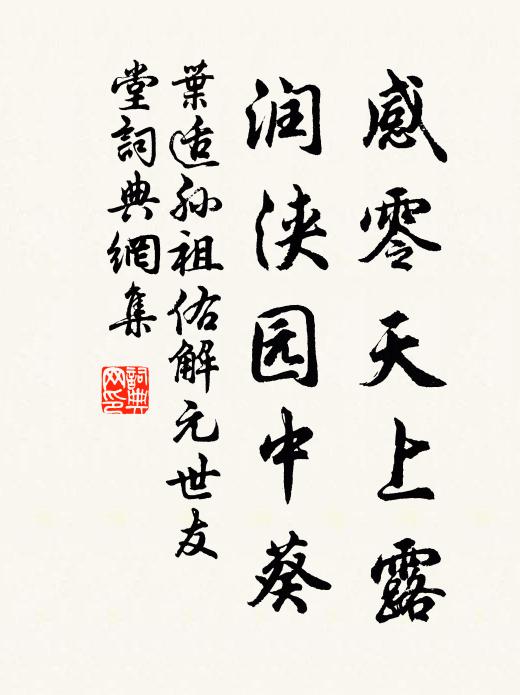 感零天上露
润浃园中葵
葉适孙祖佑解元世友
堂詞典網集
詞典
网印